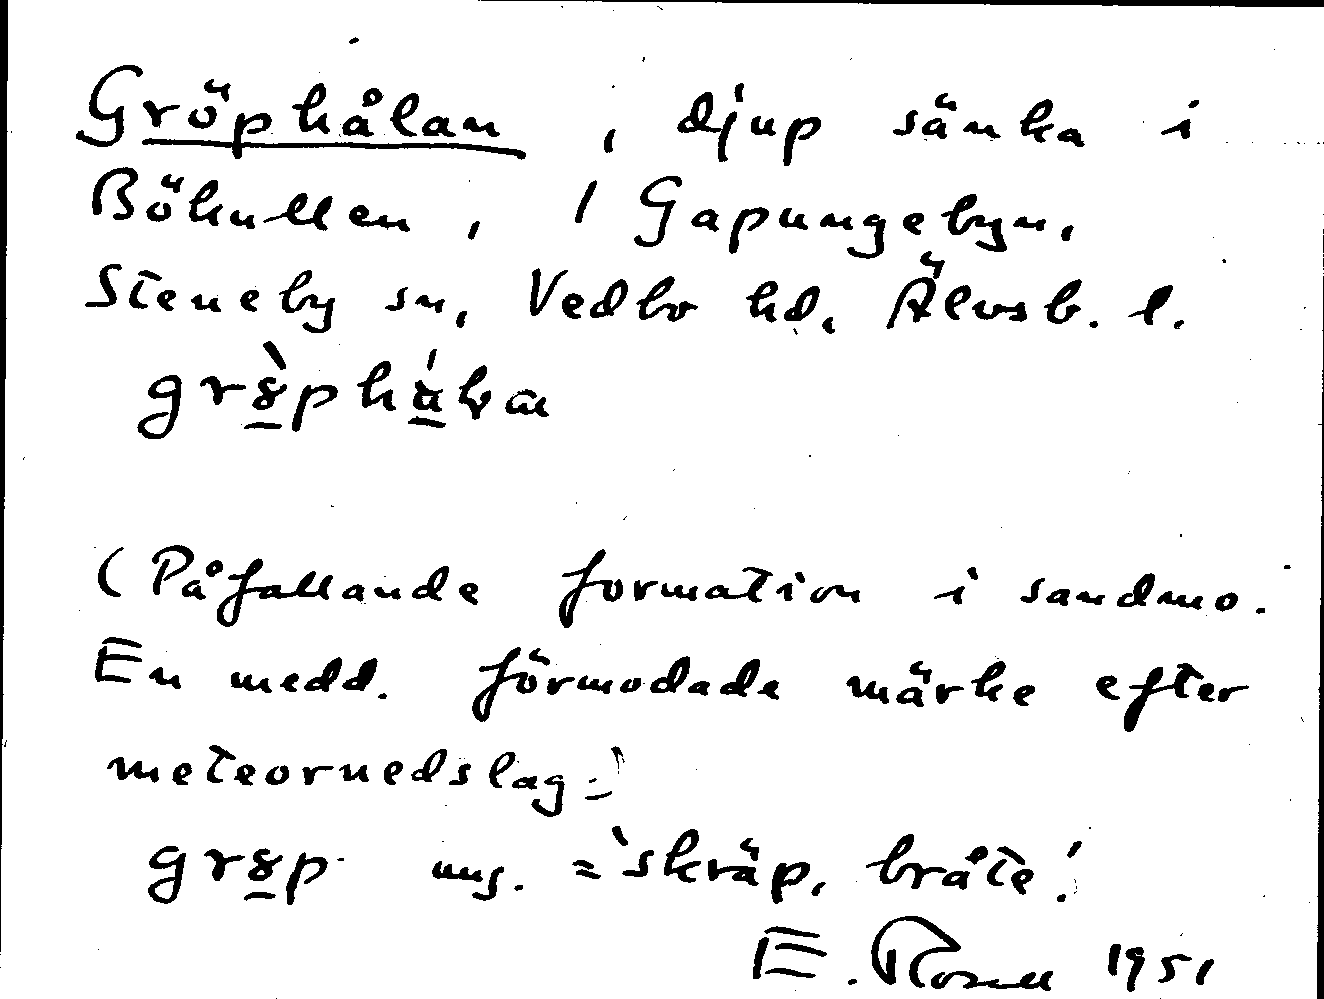 Gröphålan, djup sänka i
Bökullen, i Gapungebyn,
Steneby sn, Vedbo hd, Älvsb. l.
(Påfallande formation i sandmo.
En medd. förmodade märke efter
meteornedslag.)
ung. = 'skräp, bråte.'
E. Rosell 1951